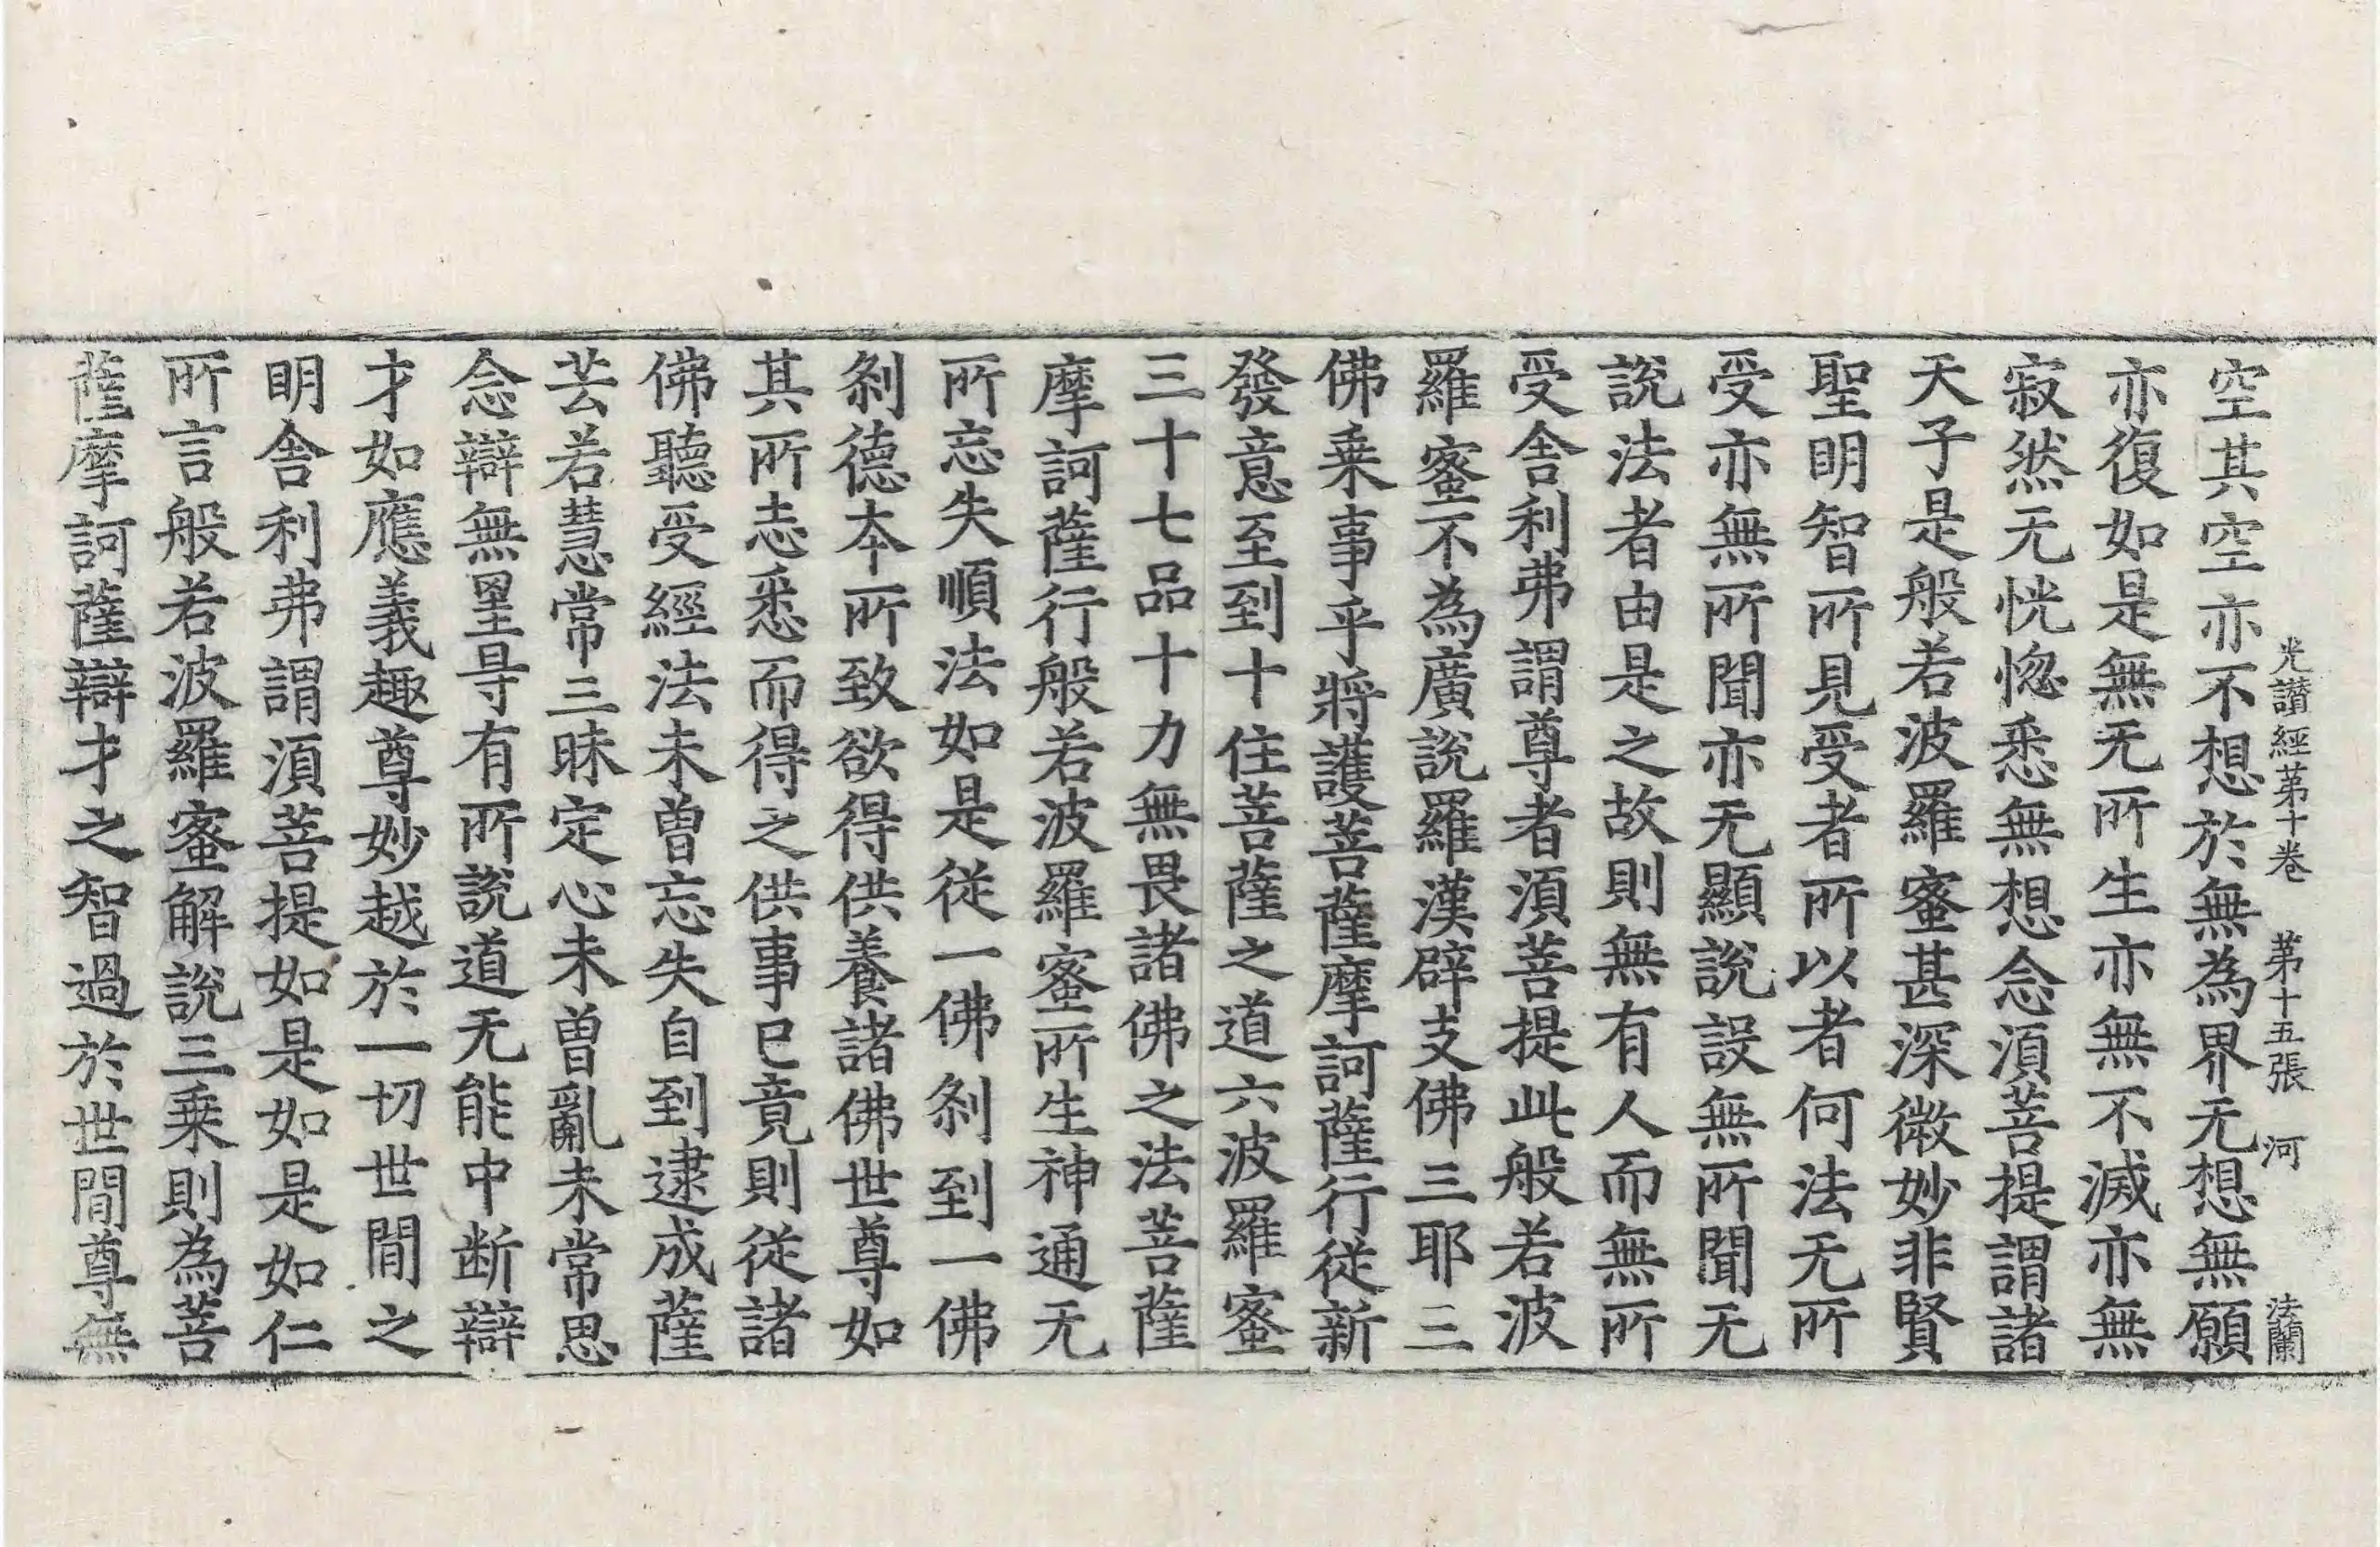 光讃經第十卷　第十五張　河　法蘭
空其空亦不想於無為界无想無願
亦復如是無无所生亦無不滅亦無
寂然无恍惚悉無想念湏菩提謂諸
天子是般若波羅蜜甚深微妙非賢
聖明智所見受者所以者何法无所
受亦無所聞亦无顯說設無所聞无
說法者由是之故則無有人而無所
受舎利弗謂尊者湏菩提此般若波
羅蜜不為廣說羅漢辟支佛三耶三
佛乗事乎將護菩薩摩訶薩行從新
發意至到十住菩薩之道六波羅蜜
三十七品十力無畏諸佛之法菩薩
摩訶薩行般若波羅蜜所生神通无
所忘失順法如是從一佛刹到一佛
刹德本所致欲得供養諸佛世尊如
其所志悉而得之供事已竟則從諸
佛聽受經法未曽忘失自到逮成薩
芸若慧常三昧定心未曽亂未常思
念辯無罣㝵有所說道无能中断辯
才如應義趣尊妙越於一切世閒之
明舎利弗謂湏菩提如是如是如仁
所言般若波羅蜜解說三乗則為菩
薩摩訶薩辯才之智過於世閒尊無